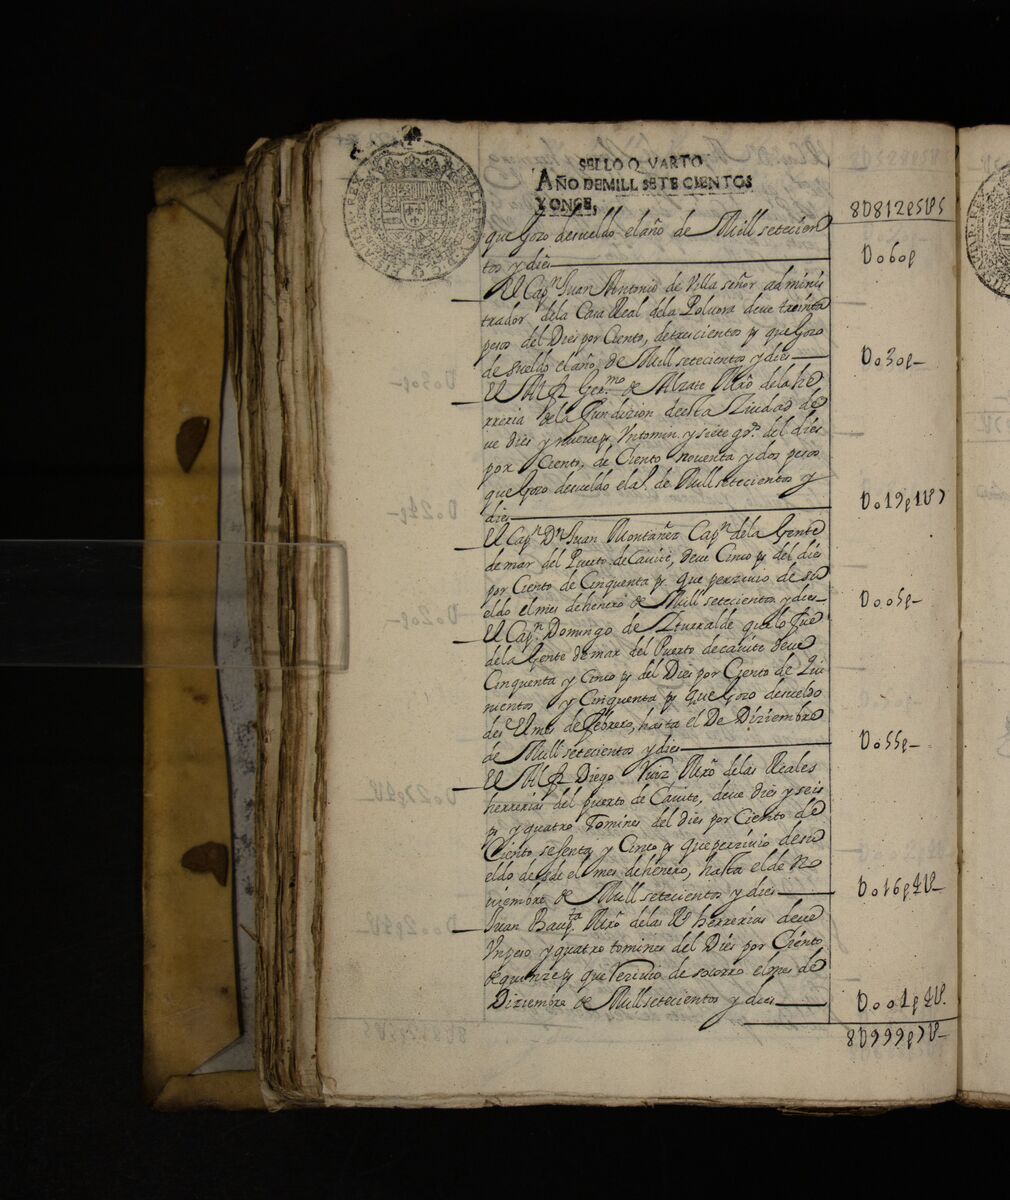 SELLO QVARTO
AÑO DEMILL SETECIENTOS
YONSE,
8U812p5U5
que Gozo desueldo el año de Mill setecien
tos y dies
U060p
El Capn Juan Antonio de Villa señor adminis
trador dela Casa Real dela Poluora deve treinta
pesos del Dies por Ciento, detrescientos ps que Gozo
de sueldo el año, de Mill setecientos y dies
U030p
El M R Germo de Alzate Mro dela he
rreria dela Fundizion desta Ziudad de
ue dies y nueve ps Vntomin, y siete gs del dies
por Ciento, de Ciento noventa y dos pesos
que Gozo desueldo el aº. de Mill setecientos y
dies
U019p1U7
El Capn Dn Juan Montañez Capn dela Gente
de mar del Puerto de Cavite, deve Cinco ps del dies
por Ciento de Cinquenta ps que perzivio de su
eldo el mes de henero de Mill setecientos y dies
U005p
El Capn Domingo de Yturralde que lo fue
dela Gente de mar del Puerto decavite deve
Cinquenta y Cinco ps del Dies por Ciento de Qui
nientos y Cinquenta ps que Gozo desueldo
des El mes de Febrero, hasta el De Diziembre
de Mill setecientos y dies
U055p
El M R Diego Ruiz Mro delas Reales
herrerias del puerto de Cavite, deve dies y seis
ps y quatro Tomines del Dies por Ciento de
Ciento sesenta y Cinco ps que perzivio desu
eldo desde el mes de henero, hasta el de No
viembre de Mill setecientos y dies
U016p4U
Juan Baupta Mro delas Rs herrerias deve
Vn peso y quatro tomines del Dies por Ciento
de quinze ps que Rezivio de socorro el mes de
Diziembre de Mill setecientos y dies
U001p4U
8U999p7U